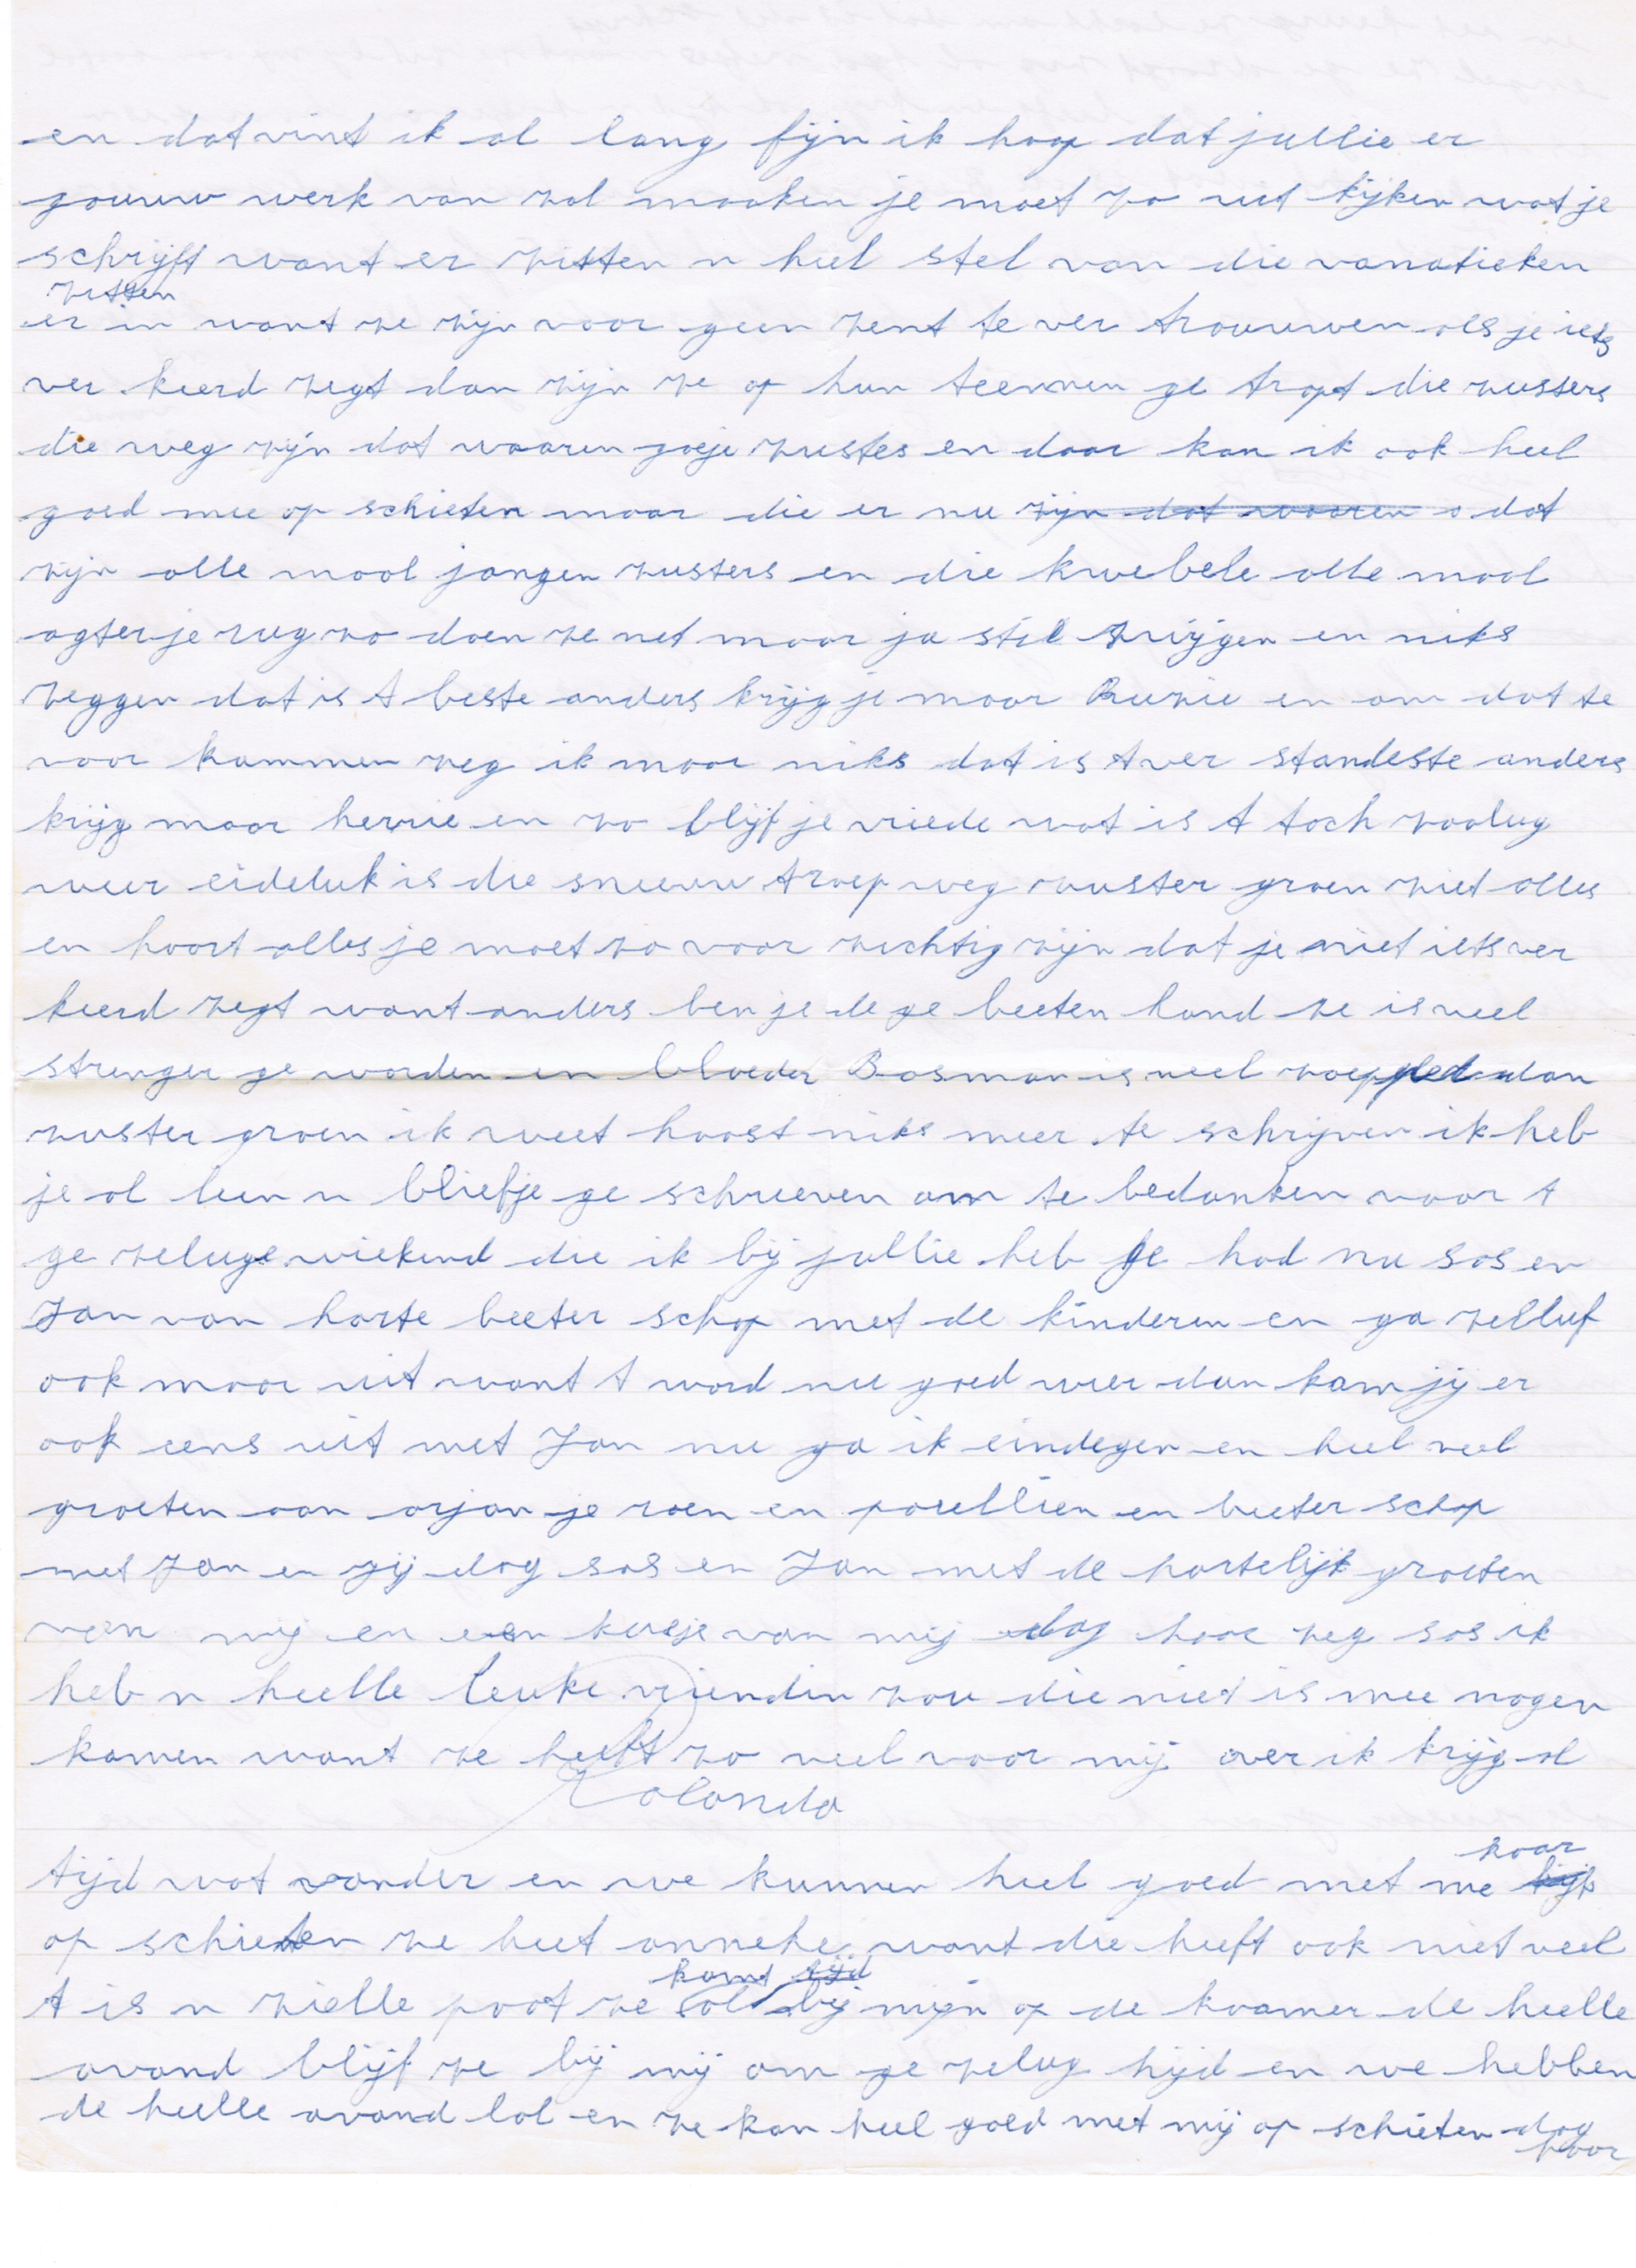 en dat vint ik al lang fijn ik hoop dat jullie er
gouww werk van zal maaken je moet zo uit kijken wat je
schrijft want er zitten n heel stel van die vanatieken
zitten
er in want ze zijn voor geen zent te ver trouwwen als je iets
ver keerd zegt dan zijn ze op hun teennen ge trapt die zusters
die weg zijn dat waaren goeje zustes en daar kan ik ook heel
goed mee op schieten maar die er nu zijn dat waaren o dat
zijn alle maal jongen zusters en die kwebele alle maal
agter je rug zo doen ze net maar ja stil zwijgen en niks
zeggen dat is t beste anders krijg je maar Ruzie en om dat te
voor kommen zeg ik maar niks dat is t ver standeste anders
krijg maar herrie en zo blijf je vriede wat is t toch zoolug
weer eideluk is die sneeuw troep weg zuster groen ziet alles
en hoort alles je moet zo voor zichtig zijn dat je niet iets ver
keerd zegt want anders ben je de ge beeten hond ze is veel
strenger ge worden en bloeder Bosman is veel dan
zuster groen ik weet hoost niks meer te schrijven ik heb
je al leen n bliefje ge schreeven om te bedanken voor t
ge zeluge wiekend die ik bij jullie heb ge had nu sos en
Jan van harte beeter schap met de kinderen en ga zelluf
ook maar uit want t word nu goed weer dan kam jij er
ook eens uit met Jan nu ga ik eindegen en heel veel
groeten aan arjan je roen en paullien en beeter schap
met Jan en jij dag sos en Jan met de hartelijk groeten
van mij en een kusje van mij dag hoor zeg sos ik
heb n heelle leuke vriendin zou die niet is mee mogen
komen want ze heeft zo veel voor mij over ik krijg al
Jolanda
haar
tijd wat vander en we kunnen heel goed met me
op schieten ze heet anneke want die heeft ook niet veel
komt tijd
t is n zielle poot ze al bij mijn op de kaamer de heelle
avond blijf ze bij mij om ge zelug hijd en we hebben
de heelle avond lol en ze kan heel goed met mij op schieten dag
hoor